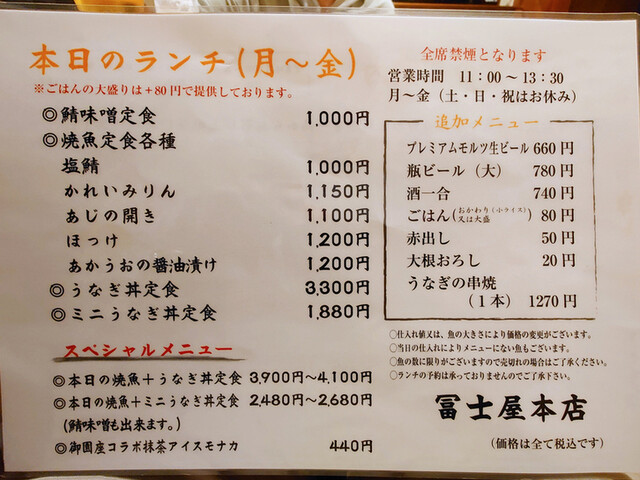 本日のランチ(月～金)
※ごはんの大盛りは＋80円で提供しております。
◎鯖味噌定食 1,000円
◎焼魚定食各種
塩鯖 1,000円
かれいみりん 1,150円
あじの開き 1,100円
ほっけ 1,200円
あかうおの醤油漬け 1,200円
◎うなぎ丼定食 3,300円
◎ミニうなぎ丼定食 1,880円
スペシャルメニュー
◎本日の焼魚＋うなぎ丼定食 3,900円～4,100円
◎本日の焼魚＋ミニうなぎ丼定食 2,480円～2,680円
(鯖味噌も出来ます。)
◎御園座コラボ抹茶アイスモナカ 440円
全席禁煙となります
営業時間 11：00～13：30
月～金（土・日・祝はお休み）
追加メニュー
プレミアムモルツ生ビール 660円
瓶ビール（大） 780円
酒一合 740円
ごはん(おかわり(小ライス)又は大盛) 80円
赤出し 50円
大根おろし 20円
うなぎの串焼
（1本） 1270円
○仕入れ値又は、魚の大きさにより価格の変更がございます。
○当日の仕入れによりメニューにない魚もございます。
○魚の数に限りがございますので売切れの場合はご了承ください。
○ランチの予約は承っておりませんのでご了承下さい。
冨士屋本店
（価格は全て税込です）